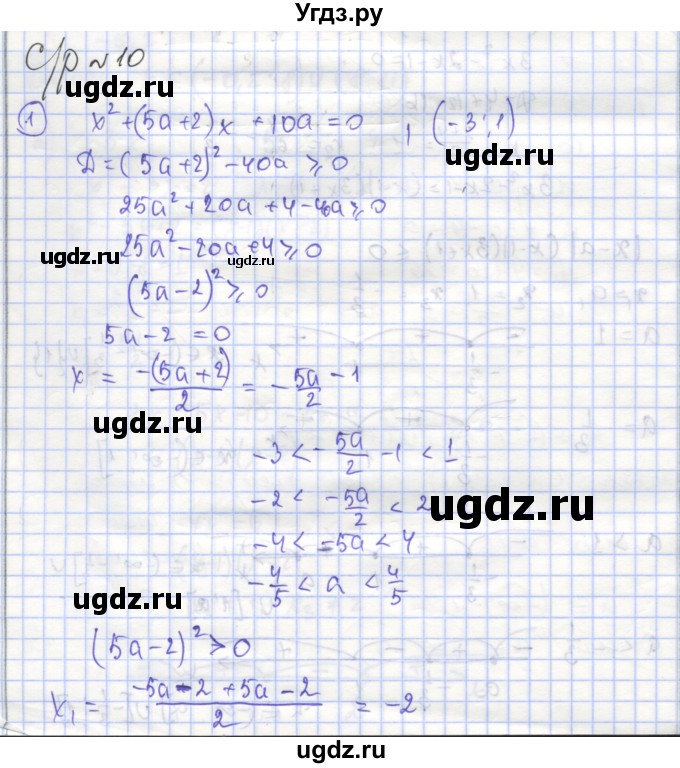 Угдз.ру
С/р №10
ugdz.ru
1 x² + (5a+2)x + 10a = 0 , (-3; 1)
D = (5a+2)² - 40a ⩾ 0
ugdz.ru
25a² + 20a + 4 - 40a ⩾ 0
25a² - 20a + 4 ⩾ 0
ugdz.ru
ugdz.ru
(5a-2)² ⩾ 0
5a - 2 = 0
x = -(5a+2)/2 = -5a/2 - 1
ugdz.ru
-3 < -5a/2 - 1 < 1
-2 < -5a/2 < 2
ugdz.ru
-4 < -5a < 4
-4/5 < a < 4/5
ugdz.ru
(5a-2)² > 0
x₁ = -5a-2+5a-2/2 = -2
ugdz.ru
ugdz.ru